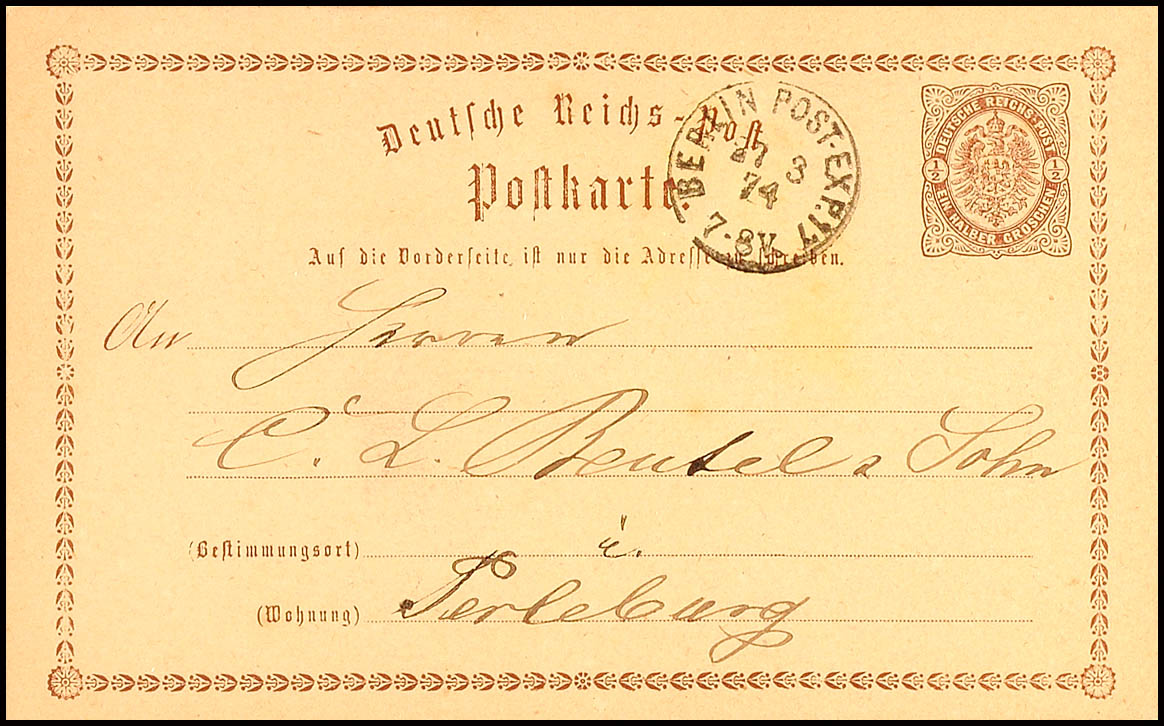 Deutsche Reichs-Post
Postkarte.
BERLIN POST-EXP. 17
27 3
74
7-8V
DEUTSCHE REICHS-POST
1/2 1/2
EIN HALBER GROSCHEN
Auf die Vorderseite ist nur die Adresse zu schreiben.
An Herren
C. L. Beutel & Sohn
(Bestimmungsort) i.
(Wohnung) Perleburg